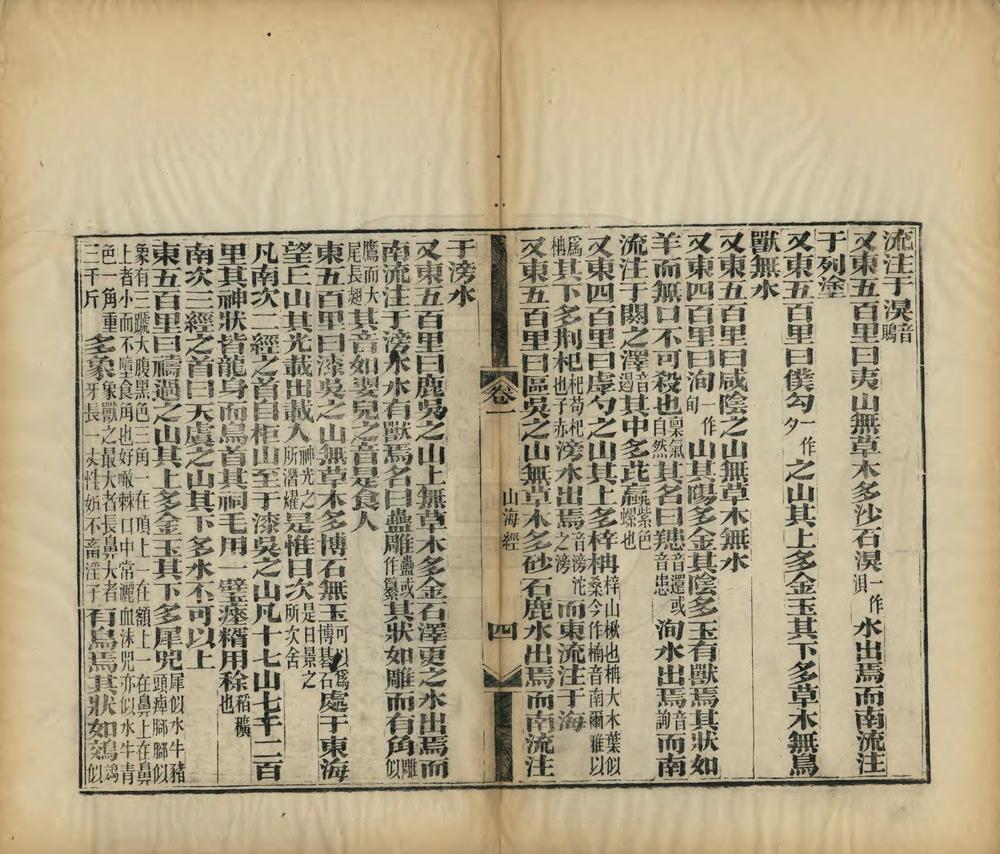 流注于湨音鵙
又東五百里曰夷山無草木多沙石湨一作浿水出焉而南流注
于列塗
又東五百里曰僕勾一作夕之山其上多金玉其下多草木無鳥
獸無水
又東五百里曰咸陰之山無草木無水
又東四百里曰洵一作旬山其陽多金其陰多玉有獸焉其狀如
羊而無口不可殺也稟氣自然其名曰𦍩音還或音患洵水出焉音詢而南
流注于閼之澤音遏其中多茈蠃紫色螺也
又東四百里曰虖勺之山其上多梓枬梓山楸也枬大木葉似桑今作楠音南爾雅以
爲枬其下多荆杞杞苟杞也子赤滂水出焉音滂沱之滂而東流注于海
又東五百里曰區吳之山無草木多砂石鹿水出焉而南流注
山海經
卷一
四
于滂水
又東五百里曰鹿吳之山上無草木多金石澤更之水出焉而
南流注于滂水水有獸焉名曰蠱雕蠱或作纂其狀如雕而有角雕似
鷹而大尾長翅其音如嬰兒之音是食人
東五百里曰漆吳之山無草木多博石無玉可以爲博碁石處于東海
望丘山其光載出載入神光之所潛耀是惟日次是日景之所次舍
凡南次二經之首自柜山至于漆吳之山凡十七山七千二百
里其神狀皆龍身而鳥首其祠毛用一璧瘞糈用稌稻穬也
南次三經之首曰天虞之山其下多水不可以上
東五百里曰禱過之山其上多金玉其下多犀兕犀似水牛豬頭痺腳腳似
象有三蹏大腹黑色三角一在頂上一在額上一在鼻上在鼻
上者小而不墮食角也好噉棘口中常灑血沬兕亦似水牛青
色一角重三千斤多象象獸之最大者長鼻大者牙長一丈性妬不畜淫子有鳥焉其狀如鵁鵁似